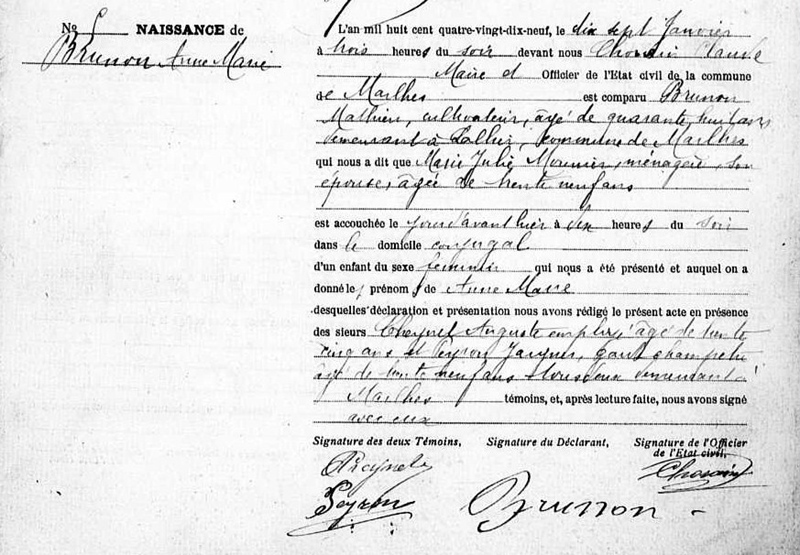 No 5 NAISSANCE de
Brunon Anne Marie
L'an mil huit cent quatre-vingt-dix-neuf, le dix sept Janvier
à trois heures du soir devant nous Claude
Maire et Officier de l'Etat civil de la commune
de Marlhes est comparu Brunon
Mathieu, cultivateur, âgé de quarante huit ans
demeurant à commune de Marlhes
qui nous a dit que Marie Julie Mounier, ménagère, son
épouse, âgée de trente neuf ans
est accouchée le jour d'avant hier à dix heures du soir
dans le domicile conjugal
d'un enfant du sexe féminin qui nous a été présenté et auquel on a
donné les prénoms de Anne Marie
desquelles déclaration et présentation nous avons rédigé le présent acte en présence
des sieurs Cheynet Auguste employé âgé de trente
cinq ans et Peyron Jacques, garde champêtre
âgé de trente neuf ans tous deux demeurant à
Marlhes témoins, et, après lecture faite, nous avons signé
avec eux
Signature des deux Témoins, Signature du Déclarant, Signature de l'Officier
de l'Etat civil,
Cheynet
Peyron Brunon